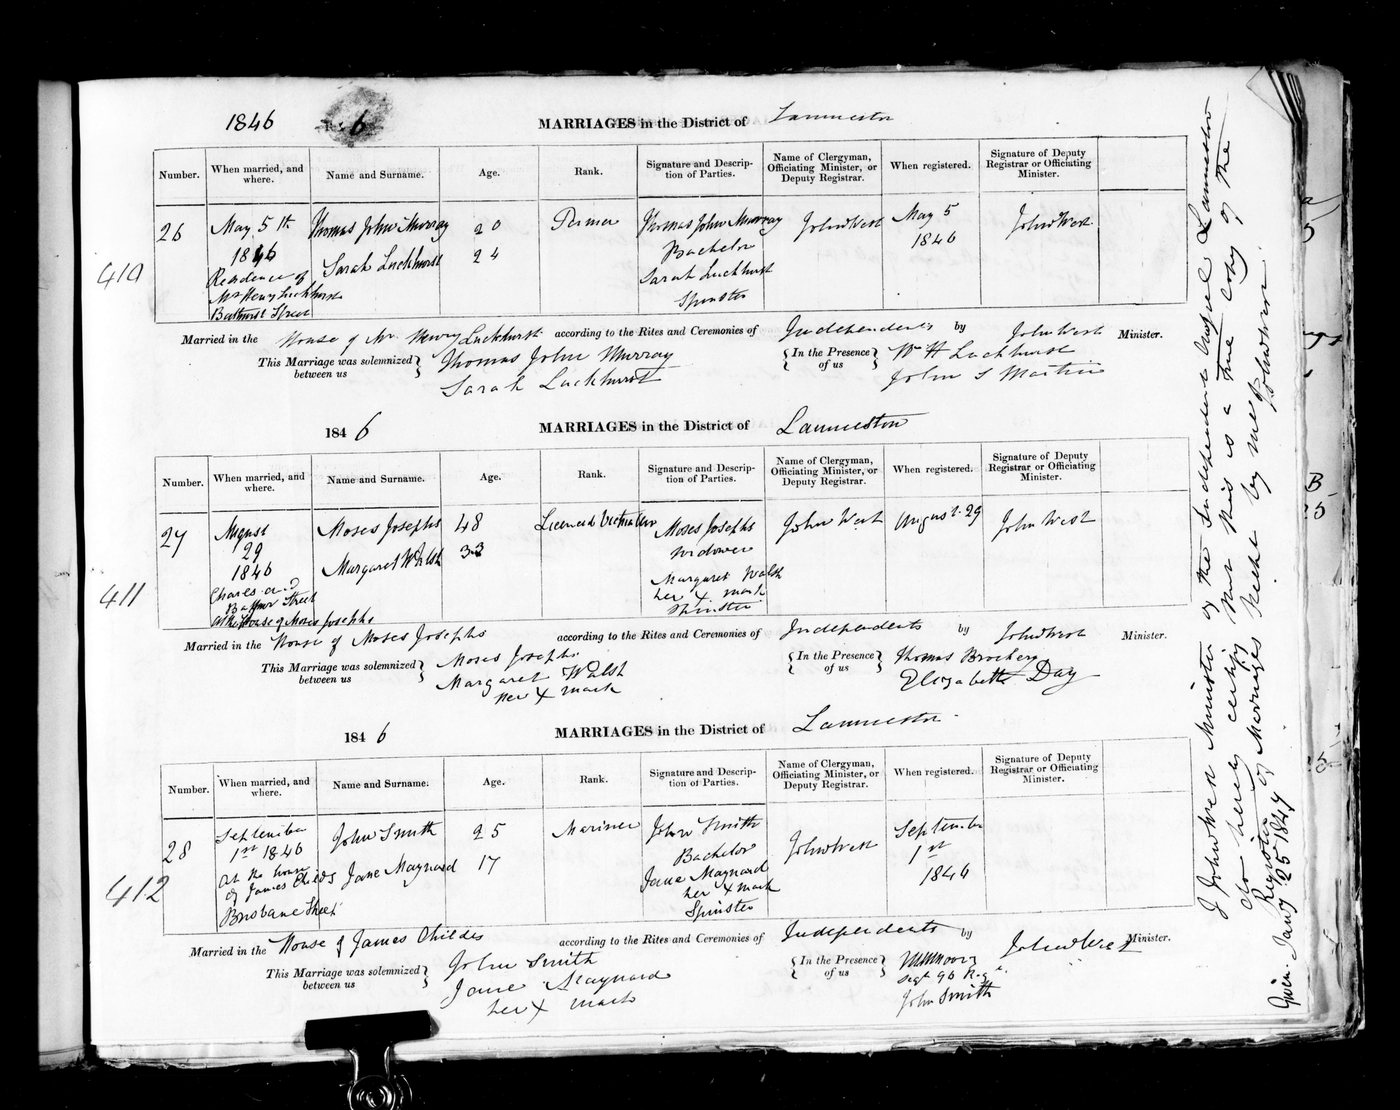 1846 6 MARRIAGES in the District of Launceston
Number. When married, and where. Name and Surname. Age. Rank. Signature and Description of Parties. Name of Clergyman, Officiating Minister, or Deputy Registrar. When registered. Signature of Deputy Registrar or Officiating Minister.
410
26
May 5th
1846
Residence of
Mr Henry Luckhurst
Bathurst Street
Thomas John Murray
Sarah Luckhurst
20
24
Farmer
Thomas John Murray
Bachelor
Sarah Luckhurst
Spinster
John West
May 5
1846
John West
Married in the House of Mr Henry Luckhurst according to the Rites and Ceremonies of Independents by John West Minister.
This Marriage was solemnized between us { Thomas John Murray
Sarah Luckhurst
{In the Presence of us} Wm H Luckhurst
John S Martin
1846 MARRIAGES in the District of Launceston
Number. When married, and where. Name and Surname. Age. Rank. Signature and Description of Parties. Name of Clergyman, Officiating Minister, or Deputy Registrar. When registered. Signature of Deputy Registrar or Officiating Minister.
411
27
August
29
1846
Charles and
Street
at the House of Moses Josephs
Moses Josephs
Margaret Walsh
48
33
Licensed Victualler
Moses Josephs
Widower
Margaret Walsh
her x mark
Spinster
John West
August 29
John West
Married in the House of Moses Josephs according to the Rites and Ceremonies of Independents by John West Minister.
This Marriage was solemnized between us } Moses Josephs
Margaret Walsh
her x mark
{In the Presence of us} Thomas
Elizabeth Day
1846 MARRIAGES in the District of Launceston
Number. When married, and where. Name and Surname. Age. Rank. Signature and Description of Parties. Name of Clergyman, Officiating Minister, or Deputy Registrar. When registered. Signature of Deputy Registrar or Officiating Minister.
412
28
September
1st 1846
At the house
of James Childs
Brisbane Street
John Smith
Jane Maynard
25
17
Mariner
John Smith
Bachelor
Jane Maynard
her x mark
Spinster
John West
September
1st
1846
John West
Married in the House of James Childs according to the Rites and Ceremonies of Independents by Minister.
This Marriage was solemnized between us } John Smith
Jane Maynard
her x mark
{In the Presence of us}
Sergt 96 Regt
John Smith
I John West Minister of the Independent Chapel Launceston
do hereby certify that this is a true Copy of the
Register of Marriages kept by me
John West
Given Jany 25 1847